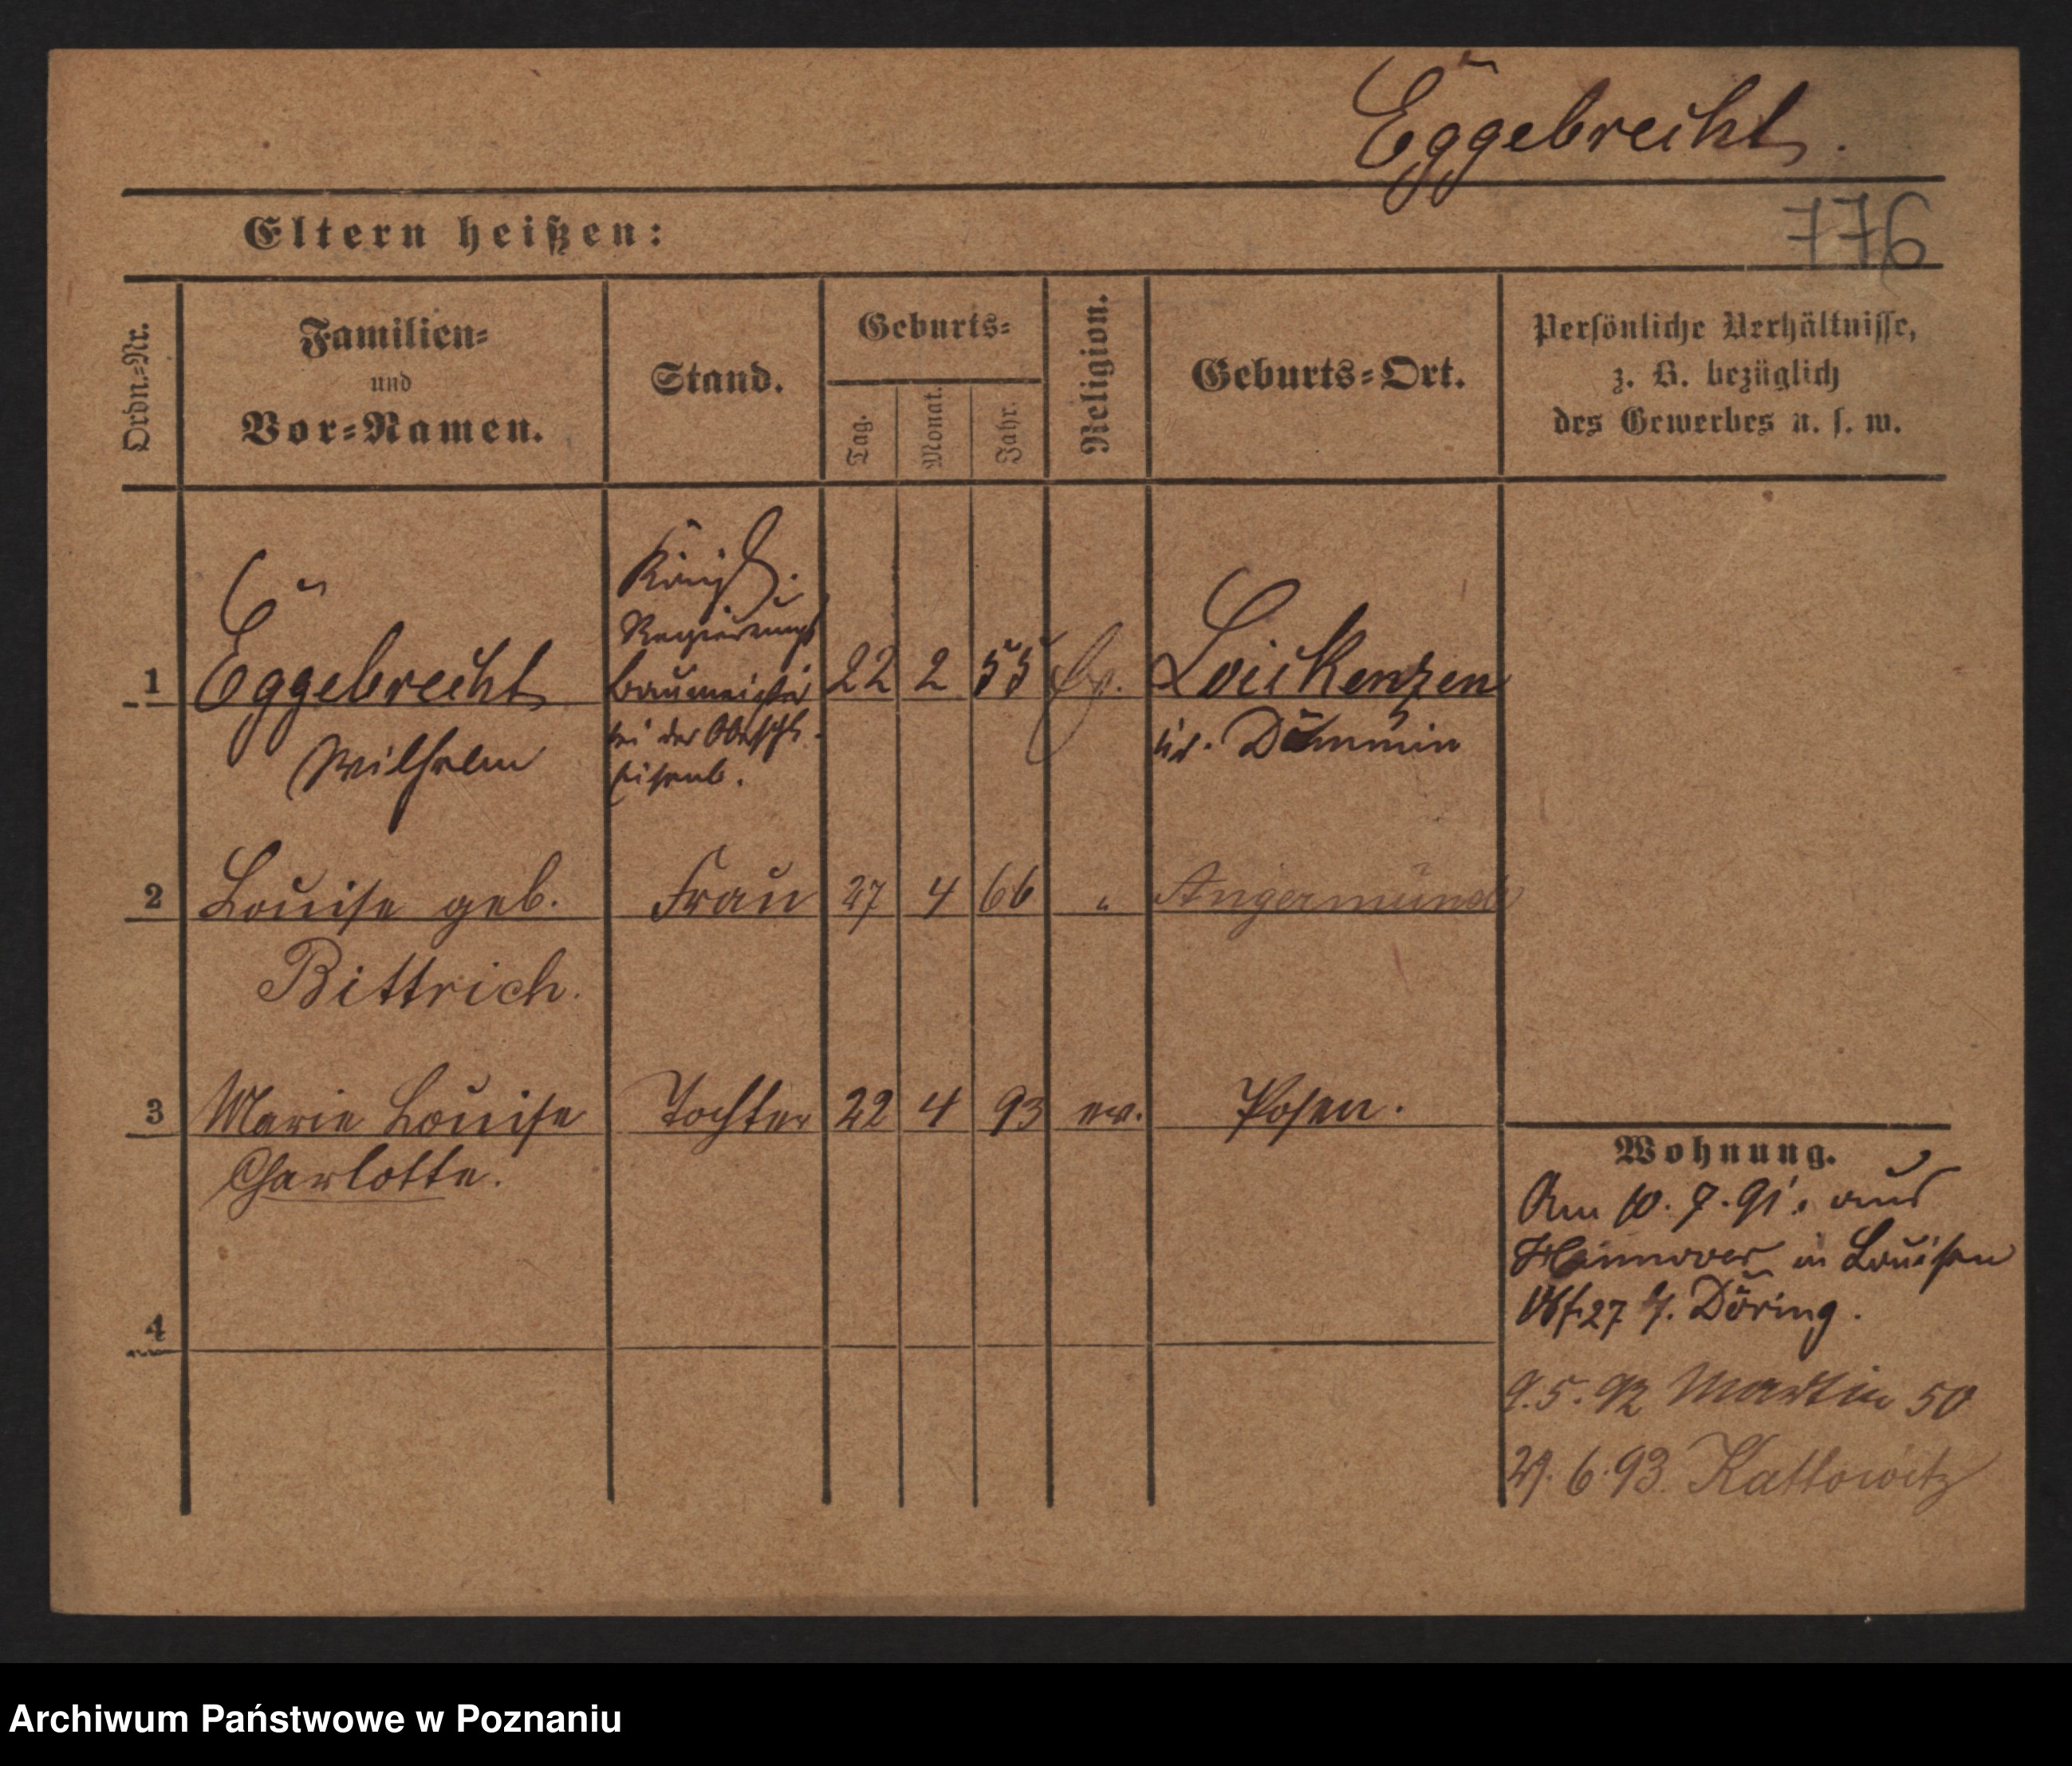 Eggebrecht.
776
Eltern heißen:
Ordn.=Nr.
Familien=
und
Vor=Namen.
Stand.
Geburts=
Tag.
Monat.
Jahr.
Religion.
Geburts=Ort.
Persönliche Verhältnisse,
z. B. bezüglich
des Gewerbes u. s. w.
1
Eggebrecht
Wilhelm
Königl.
Regierungs
baumeister
bei der Oberschl.
Eisenb.
22 2 55 Ev.
Loickenzen
Kr. Demmin
2
Louise geb.
Bittrich.
Frau
27 4 66 "
Angermünde
3
Marie Louise
Charlotte.
Tochter
22 4 93 ev.
Posen.
4
Wohnung.
Am 10. 7. 91. aus
Hannover in Louisen
27 Döring.
9.5.92 Martin 50
29.6.93. Kattowitz
Archiwum Państwowe w Poznaniu